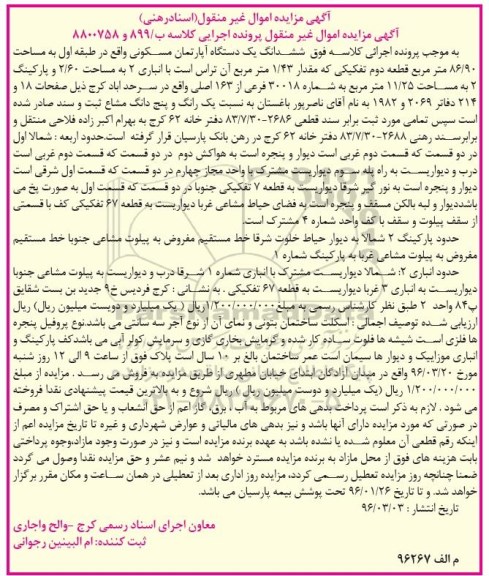 آگهی مزایده اموال غیر منقول(اسنادرهنی)
آگهی مزایده اموال غیر منقول پرونده اجرایی کلاسه ب/۸۹۹ و ۸۸۰۰۷۵۸
به موجب پرونده اجرائی کلاسه فوق ششدانگ یک دستگاه آپارتمان مسکونی واقع در طبقه اول به مساحت
۸۶/۹۰ متر مربع قطعه دوم تفکیکی که مقدار ۱/۴۳ متر مربع آن تراس است با انباری ۲ به مساحت ۲/۶۰ و پارکینگ
۲ به مساحت ۱۱/۲۵ متر مربع به شماره ۳۰۰۱۸ فرعی از ۱۶۳ اصلی واقع در سرحد اباد کرج ذیل صفحات ۱۸ و
۲۱۴ دفاتر ۲۰۶۹ و ۱۹۸۲ به نام آقای ناصرپور باغستان به نسبت یک رانگ و پنج دانگ مشاع ثبت و سند صادر شده
است سپس تمامی مورد ثبت برابر سند قطعی ۲۶۸۶-۸۳/۷/۳۰ دفتر خانه ۶۲ کرج به بهرام اکبر زاده فلاحی منتقل و
برابرسند رهنی ۲۶۸۸-۸۳/۷/۳۰ دفتر خانه ۶۲ کرج در رهن بانک پارسیان قرار گرفته است.حدود اربعه : شمالا اول
در دو قسمت که قسمت دوم غربی است دیوار و پنجره است به هواکش دوم در دو قسمت که قسمت دوم غربی است
درب و دیواریست به راه پله سوم دیواریست مشترک با واحد مجاز چهارم در دو قسمت که قسمت اول شرقی است
دیوار و پنجره است به نور گیر شرقا دیواریست به قطعه ۷ تفکیکی جنوبا در دو قسمت که قسمت اول به صورت پخ می
باشددیوار و لبه بالکن مسقف و پنجره است به فضای حیاط مشاعی غربا دیواریست به قطعه ۶۷ تفکیکی کف با قسمتی
از سقف پیلوت و سقف با کف واحد شماره ۴ مشترک است.
حدود پارکینگ ۲ شمالا به دیوار حیاط خلوت شرقا خط مستقیم مفروض به پیلوت مشاعی جنوبا خط مستقیم
مفروض به پیلوت مشاعی غربا به پارکینگ شماره ۱
حدود انباری ۲: شمالا دیواریست مشترک با انباری شماره ۱ شرقا درب و دیواریست به پیلوت مشاعی جنوبا
دیواریست به انباری ۳ غربا دیواریست به قطعه ۶۷ تفکیکی . به نشانی : کرج فردیس خ۹ جدید بن بست شقایق
پ۸۴ واحد ۲ طبق نظر کارشناس رسمی به مبلغ ۱/۲۰۰/۰۰۰/۰۰۰ریال ( یک میلیارد و دویست میلیون ریال) ریال
ارزیابی شده توصیف اجمالی : اسکلت ساختمان بتونی و نمای آن از نوع آجر سه سانتی می باشد.نوع پروفیل پنجره
ها فلزی است شیشه ها فلوت ساده کار شده و گرمایش بخاری گازی و سرمایش کولر آبی می باشدکف پارکینگ و
انباری موزاییک و دیوار ها سیمان است عمر ساختمان بالغ بر ۱۰ سال است پلاک فوق از ساعت ۹ الی ۱۲ روز شنبه
مورخ ۹۶/۰۳/۲۰ واقع در میدان آزادگان ابتدای خیابان مطهری از طریق مزایده به فروش می رسد . مزایده از مبلغ
۱/۲۰۰/۰۰۰/۰۰۰ ریال (یک میلیارد و دویست میلیون ریال ) ریال شروع و به بالاترین قیمت پیشنهادی نقدا فروخته
می شود . لازم به ذکر است پرداخت بدهی های مربوط به آب ،برق، گاز اعم از حق انشعاب و یا حق اشتراک و مصرف
در صورتی که مورد مزایده دارای آنها باشد و نیز بدهی های مالیاتی و عوارض شهرداری و غیره تا تاریخ مزایده اعم از
اینکه رقم قطعی آن معلوم شده یا نشده باشد به عهده برنده مزایده است و نیز در صورت وجود مازاد،وجوه پرداختی
بابت هزینه های فوق از محل مازاد به برنده مزایده مسترد خواهد شد و نیم عشر و حق مزایده نقدا وصول می گردد
ضمنا چنانچه روز مزایده تعطیل رسمی گردد، مزایده روز اداری بعد از تعطیلی در همان ساعت و مکان مقرر برگزار
خواهد شد. و تا تاریخ ۹۶/۰۱/۲۶ تحت پوشش بیمه پارسیان می باشد.
تاریخ انتشار : ۹۶/۰۳/۰۳
معاون اجرای اسناد رسمی کرج -والح واجاری
ثبت کننده: ام البینین رجوانی
م الف ۹۶۲۶۷